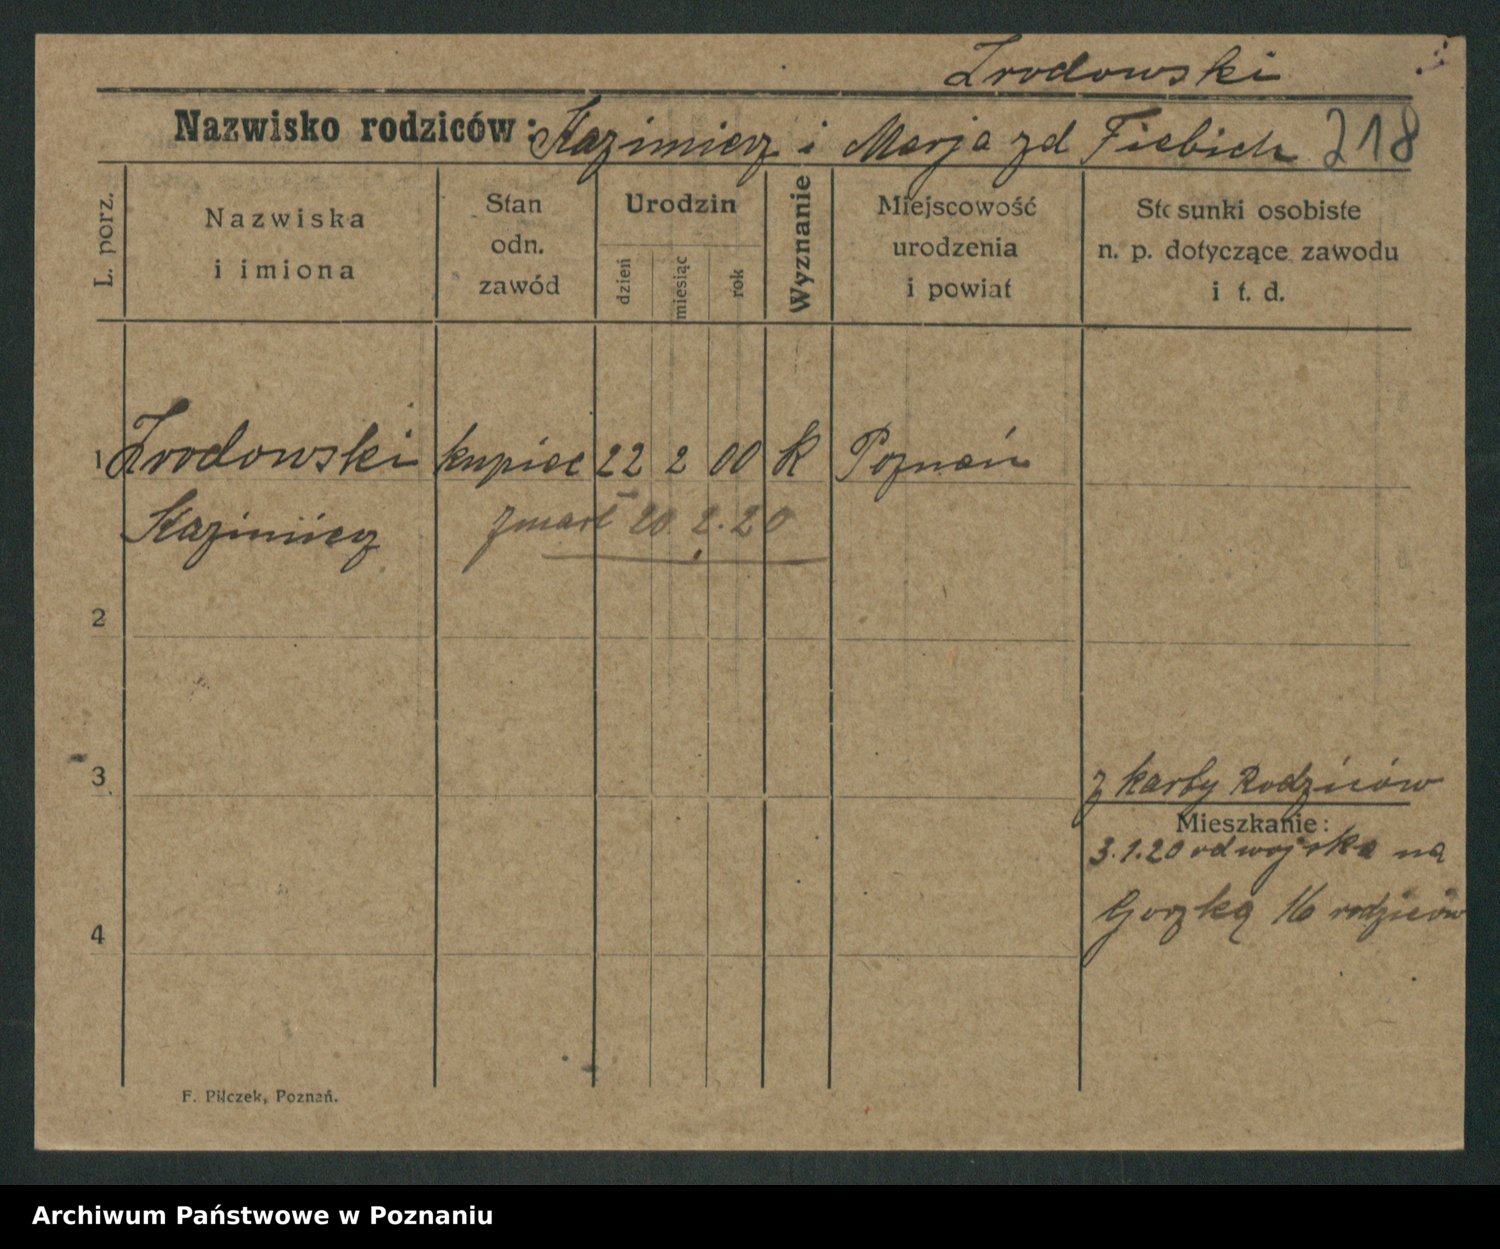 Zrodowski
Nazwisko rodziców: Kazimierz i Marja zd Fiebich 218
L. porz.
Nazwiska
i imiona
Stan
odn.
zawód
Urodzin
dzień
miesiąc
rok
Wyznanie
Miejscowość
urodzenia
i powiat
Stosunki osobiste
n. p. dotyczące zawodu
i t. d.
1 Zrodowski kupiec 22 2 00 K Poznań
Kazimierz zmarł 20 2.20
2
3
z karty Rodziców
Mieszkanie:
3.1.20 od wojska na
Gorzką 16 rodziców
4
F. Pilczek, Poznań.
Archiwum Państwowe w Poznaniu